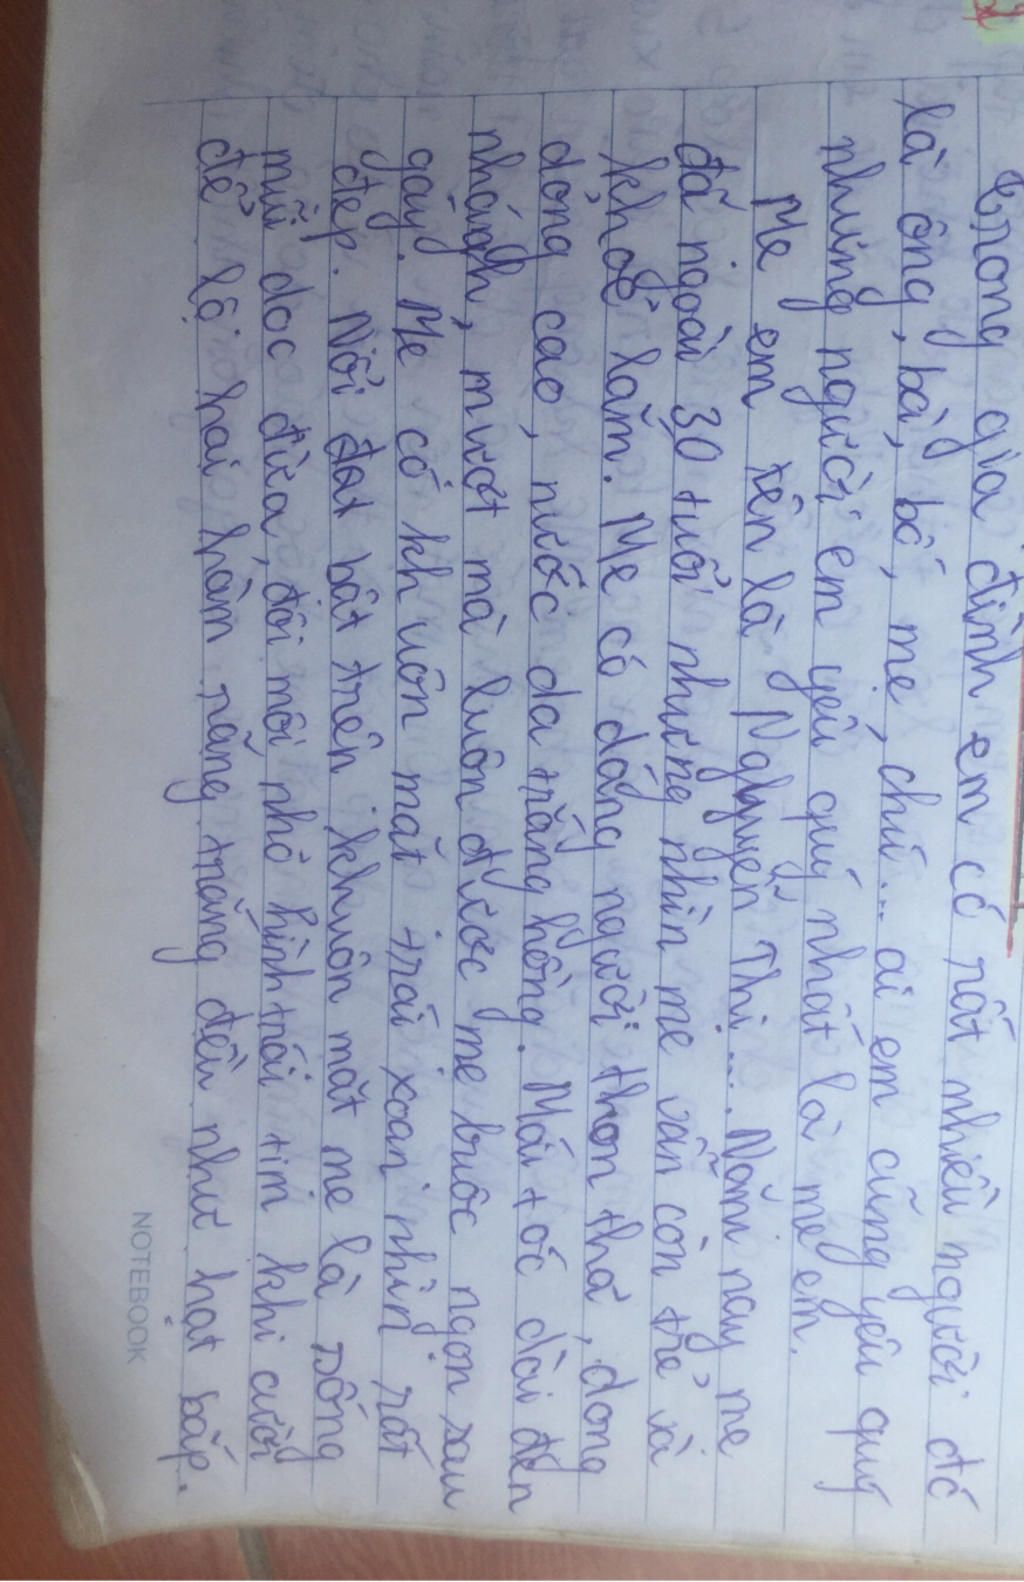 Trong gia đình em có rất nhiều người đó
là ông, bà, bố, mẹ, chú... ai em cũng yêu quý
nhưng người em yêu quý nhất là mẹ em.
Mẹ em tên là Nguyễn Thị.... Năm nay mẹ
đã ngoài 30 tuổi nhưng nhìn mẹ vẫn còn trẻ và
khoẻ lắm. Mẹ có dáng người thon thả, dong
dỏng cao, nước da trắng hồng. Mái tóc dài đen
nhánh, mượt mà luôn được mẹ buộc ngọn sau
gáy. Mẹ có khuôn mặt trái xoan nhìn rất
đẹp. Nổi đạt bật trên khuôn mặt mẹ là sống
mũi dọc dừa, đôi môi nhỏ hình trái tim khi cười
để lộ hai hàm răng trắng đều như hạt bắp.
NOTEBOOK